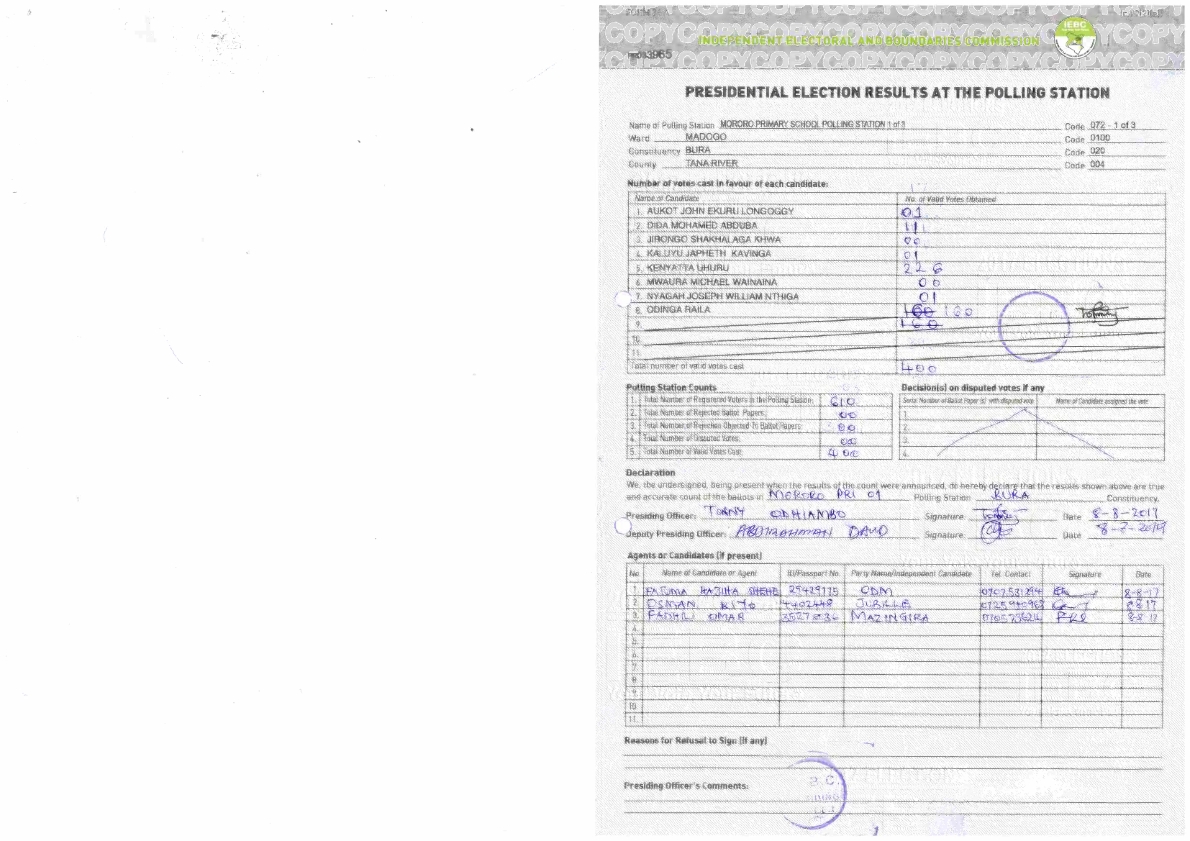 INDEPENDENT ELECTORAL AND BOUNDARIES COMMISSION
IEBC
PRESIDENTIAL ELECTION RESULTS AT THE POLLING STATION
Name of Polling Station MORORO PRIMARY SCHOOL POLLING STATION 1 of 3 Code 072 - 1 of 3
Ward MADOGO Code 0100
Constituency BURA Code 020
County TANA RIVER Code 004
Number of votes cast in favour of each candidate:
Name of Candidate No. of Valid Votes Obtained
1. AUKOT JOHN EKURU LONGOGGY 01
2. DIDA MOHAMED ABDUBA 11
3. JIRONGO SHAKHALAGA KHWA 00
4. KALUYU JAPHETH KAVINGA 01
5. KENYATTA UHURU 226
6. MWAURA MICHAEL WAINAINA 00
7. NYAGAH JOSEPH WILLIAM NTHIGA 01
8. ODINGA RAILA 160 160
9. 160
10.
11.
Total number of valid votes cast 400
Polling Station Counts
1. Total Number of Registered Voters in the Polling Station 610
2. Total Number of Rejected Ballot Papers 00
3. Total Number of Rejection Objected To Ballot Papers 00
4. Total Number of Disputed Votes 00
5. Total Number of Valid Votes Cast 400
Decision(s) on disputed votes if any
Serial Number of Ballot Paper (s) with disputed vote Name of Candidate assigned the vote
1.
2.
3.
4.
Declaration
We, the undersigned, being present when the results of the count were announced, do hereby declare that the results shown above are true
and accurate count of the ballots in MORORO PRI 01 Polling Station BURA Constituency.
Presiding Officer: TONNY ODHIAMBO Signature Date 8-8-2017
Deputy Presiding Officer: ABDIRAHMAN DAUD Signature Date
Agents or Candidates (if present)
No Name of Candidate or Agent ID/Passport No. Party Name/Independent Candidate Tel. Contact Signature Date
1 FATUMA SHEHE 29429775 ODM 8-8-17
2 OSMAN JUBILEE 8 8 17
3 FADHILI OMAR MAZINGIRA 8-8 17
4.
5.
6.
7.
8.
9.
10.
11.
Reasons for Refusal to Sign (if any)
Presiding Officer's Comments: